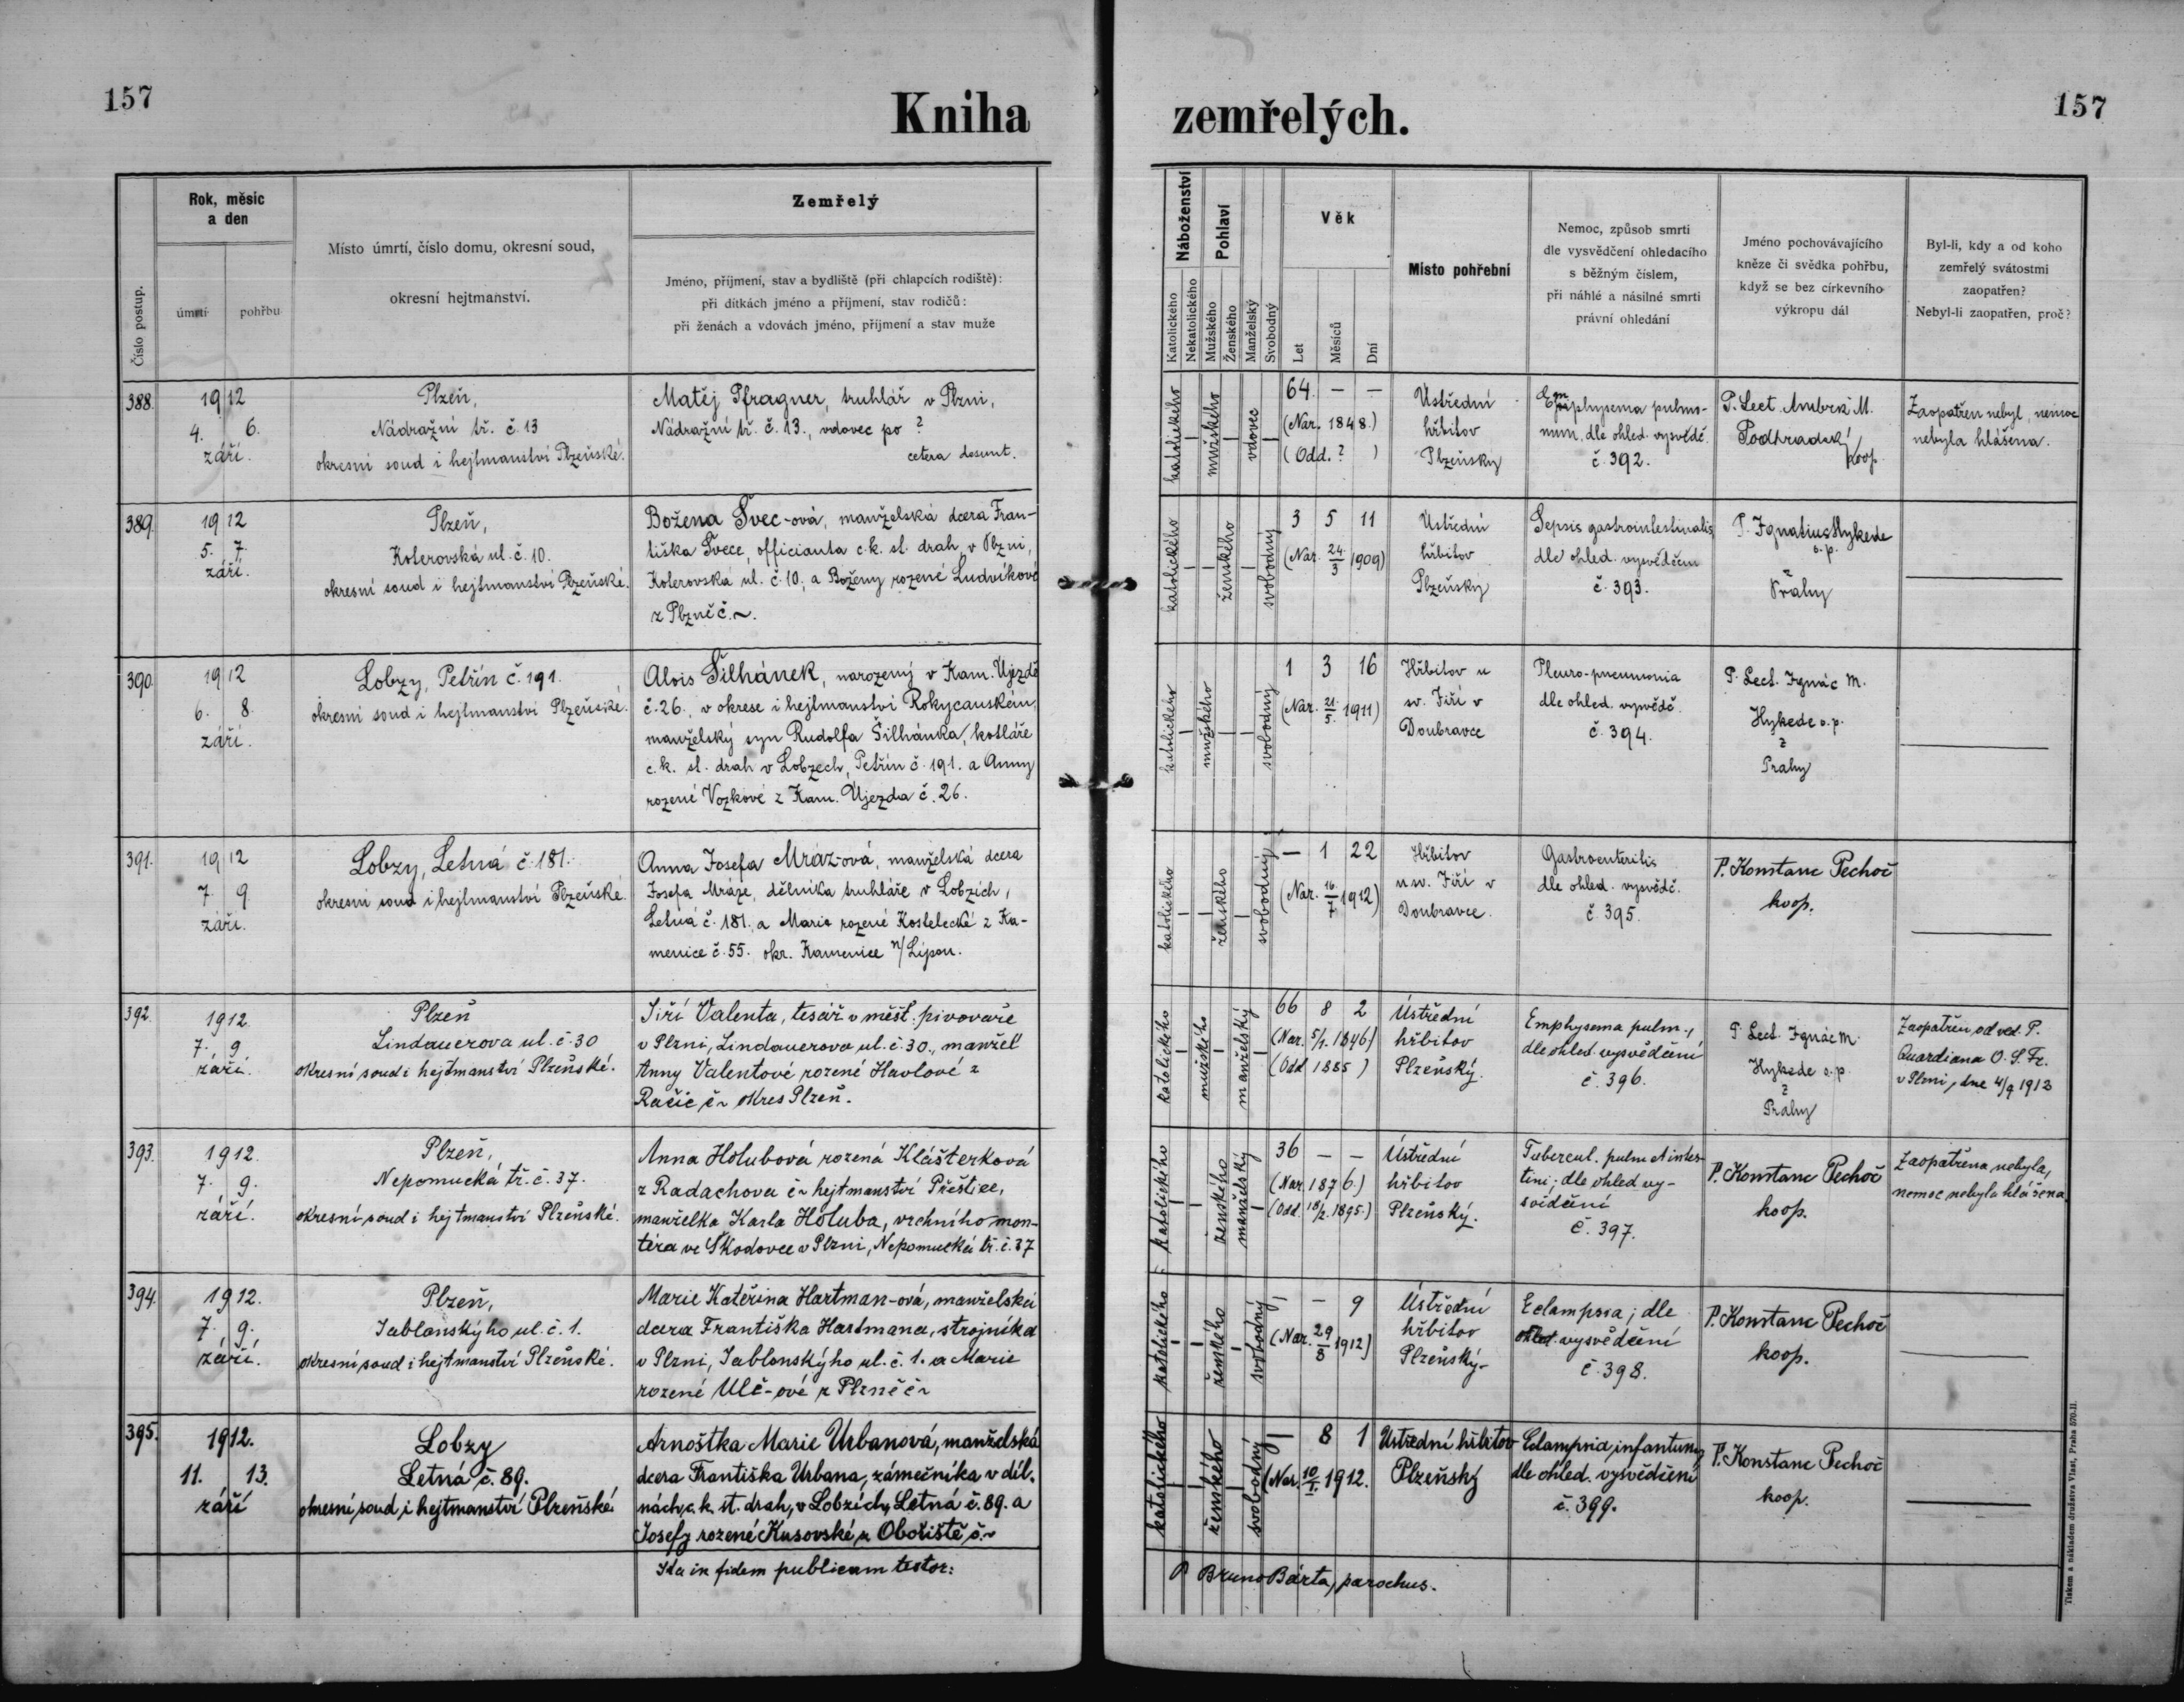 157
Kniha zemřelých.
157
Číslo postup.
Rok, měsíc
a den
úmrtí
pohřbu
Místo úmrtí, číslo domu, okresní soud,
okresní hejtmanství.
Zemřelý
Jméno, příjmení, stav a bydliště (při chlapcích rodiště):
při dítkách jméno a příjmení, stav rodičů:
při ženách a vdovách jméno, příjmení a stav muže
Náboženství
Katolického
Nekatolického
Pohlaví
Mužského
Ženského
Manželský
Svobodný
Věk
Let
Měsíců
Dní
Místo pohřební
Nemoc, způsob smrti
dle vysvědčení ohledacího
s běžným číslem,
při náhlé a násilné smrti
právní ohledání
Jméno pochovávajícího
kněze či svědka pohřbu,
když se bez církevního
výkropu dál
Byl-li, kdy a od koho
zemřelý svátostmi
zaopatřen?
Nebyl-li zaopatřen, proč?
388.
1912
4. 6.
září.
Plzeň,
Nádražní tř. č. 13
okresní soud i hejtmanství Plzeňské.
Matěj Pfragner, truhlář v Plzni,
Nádražní tř. č. 13., vdovec po ?
cetera desunt.
katolického
mužského
vdovec
64. — —
(Nar. 1848.)
(Odd. ? )
Ústřední
hřbitov
Plzeňský
Emphysema pulmo-
num, dle ohled. vysvědč.
č. 392.
P. Lect. Ambrž M.
Podhradský
koop.
Zaopatřen nebyl, nemoc
nebyla hlášena.
389.
1912
5. 7.
září.
Plzeň,
Koterovská ul. č. 10.
okresní soud i hejtmanství Plzeňské.
Božena Švec-ová, manželská dcera Fran-
tiška Švece, officianta c. k. st. drah v Plzni,
Koterovská ul. č. 10., a Boženy rozené Ludvíkové
z Plzně č. ~.
katolického
ženského
svobodný
3 5 11
(Nar. 24/3 1909)
Ústřední
hřbitov
Plzeňský
Sepsis gastrointestinalis,
dle ohled. vysvědčení
č. 393.
P. Ignatius Hykede
o. p.
z
Prahy
390.
1912
6. 8.
září.
Lobzy, Petřín č. 191.
okresní soud i hejtmanství Plzeňské.
Alois Šilhánek, narozený v Kam. Újezdě
č. 26., v okrese i hejtmanství Rokycanském,
manželský syn Rudolfa Šilhánka, kotláře
c. k. st. drah v Lobzech, Petřín č. 191. a Anny
rozené Vozkové z Kam. Újezda č. 26.
katolického
mužského
svobodný
1 3 16
(Nar. 21/5. 1911)
Hřbitov u
sv. Jiří v
Doubravce
Pleuro-pneumonia
dle ohled. vysvědč.
č. 394.
P. Lect. Ignác M.
Hykede o. p.
z
Prahy
391.
1912
7. 9.
září.
Lobzy, Letná č. 181.
okresní soud i hejtmanství Plzeňské.
Anna Josefa Mráz-ová, manželská dcera
Josefa Mráze, dělníka truhláře v Lobzích,
Letná č. 181., a Marie rozené Kostelecké z Ka-
menice č. 55. okr. Kamenice n/Lipou.
katolického
ženského
svobodný
— 1 22
(Nar. 16/7 1912)
Hřbitov
u sv. Jiří v
Doubravce.
Gastroenteritis
dle ohled. vysvědč.
č. 395.
P. Konstanc Pechoč
koop.
392.
1912.
7. 9.
září.
Plzeň
Lindauerova ul. č. 30
okresní soud i hejtmanství Plzeňské.
Jiří Valenta, tesař v měšť. pivovaře
v Plzni, Lindauerova ul. č. 30., manžel
Anny Valentové rozené Havlové z
Račic č ~ okres Plzeň.
katolického
mužského
manželský
66 8 2
(Nar. 5/1. 1846)
(Odd. 1885 )
Ústřední
hřbitov
Plzeňský.
Emphysema pulm.,
dle ohled. vysvědčení
č. 396.
P. Lect. Ignác M.
Hykede o. p.
z
Prahy
Zaopatřen od ved. P.
Quardiana O. S. Fr.
v Plzni, dne 4/9 1912
393.
1912.
7. 9.
září.
Plzeň,
Nepomucká tř. č. 37.
okresní soud i hejtmanství Plzeňské.
Anna Holubová rozená Klášterková
z Radachova č ~ hejtmanství Přeštice,
manželka Karla Holuba, vrchního mon-
téra ve Škodovce v Plzni, Nepomucká tř. č. 37
katolického
ženského
manželský
36 — —
(Nar. 1876.)
(Odd. 18/2. 1895.)
Ústřední
hřbitov
Plzeňský.
Tubercul. pulm et intes-
tini; dle ohled. vy-
svědčení
č. 397.
P. Konstanc Pechoč
koop.
Zaopatřena nebyla,
nemoc nebyla hlášena.
394.
1912.
7. 9.
září.
Plzeň,
Jablonskýho ul. č. 1.
okresní soud i hejtmanství Plzeňské.
Marie Kateřina Hartman-ová, manželská
dcera Františka Hartmana, strojníka
v Plzni, Jablonskýho ul. č. 1. a Marie
rozené Ulč-ové z Plzně č ~
katolického
ženského
svobodný
— — 9
(Nar. 29/8 1912)
Ústřední
hřbitov
Plzeňský.
Eclampsia; dle
ohled. vysvědčení
č. 398.
P. Konstanc Pechoč
koop.
395.
1912.
11. 13.
září
Lobzy
Letná č. 89.
okresní soud i hejtmanství Plzeňské
Arnoštka Marie Urbanová, manželská
dcera Františka Urbana, zámečníka v díl-
nách c. k. st. drah, v Lobzích, Letná č. 89. a
Josefy rozené Kusovské z Obořiště č. ~
katolického
ženského
svobodný
— 8 1
(Nar. 10/1. 1912.
Ústřední hřbitov
Plzeňský
Eclampsia infantum,
dle ohled. vysvědčení
č. 399.
P. Konstanc Pechoč
koop.
Ita in fidem publicam testor:
P Bruno Bárta, parochus.
Tiskem a nákladem družstva Vlast, Praha 570-II.